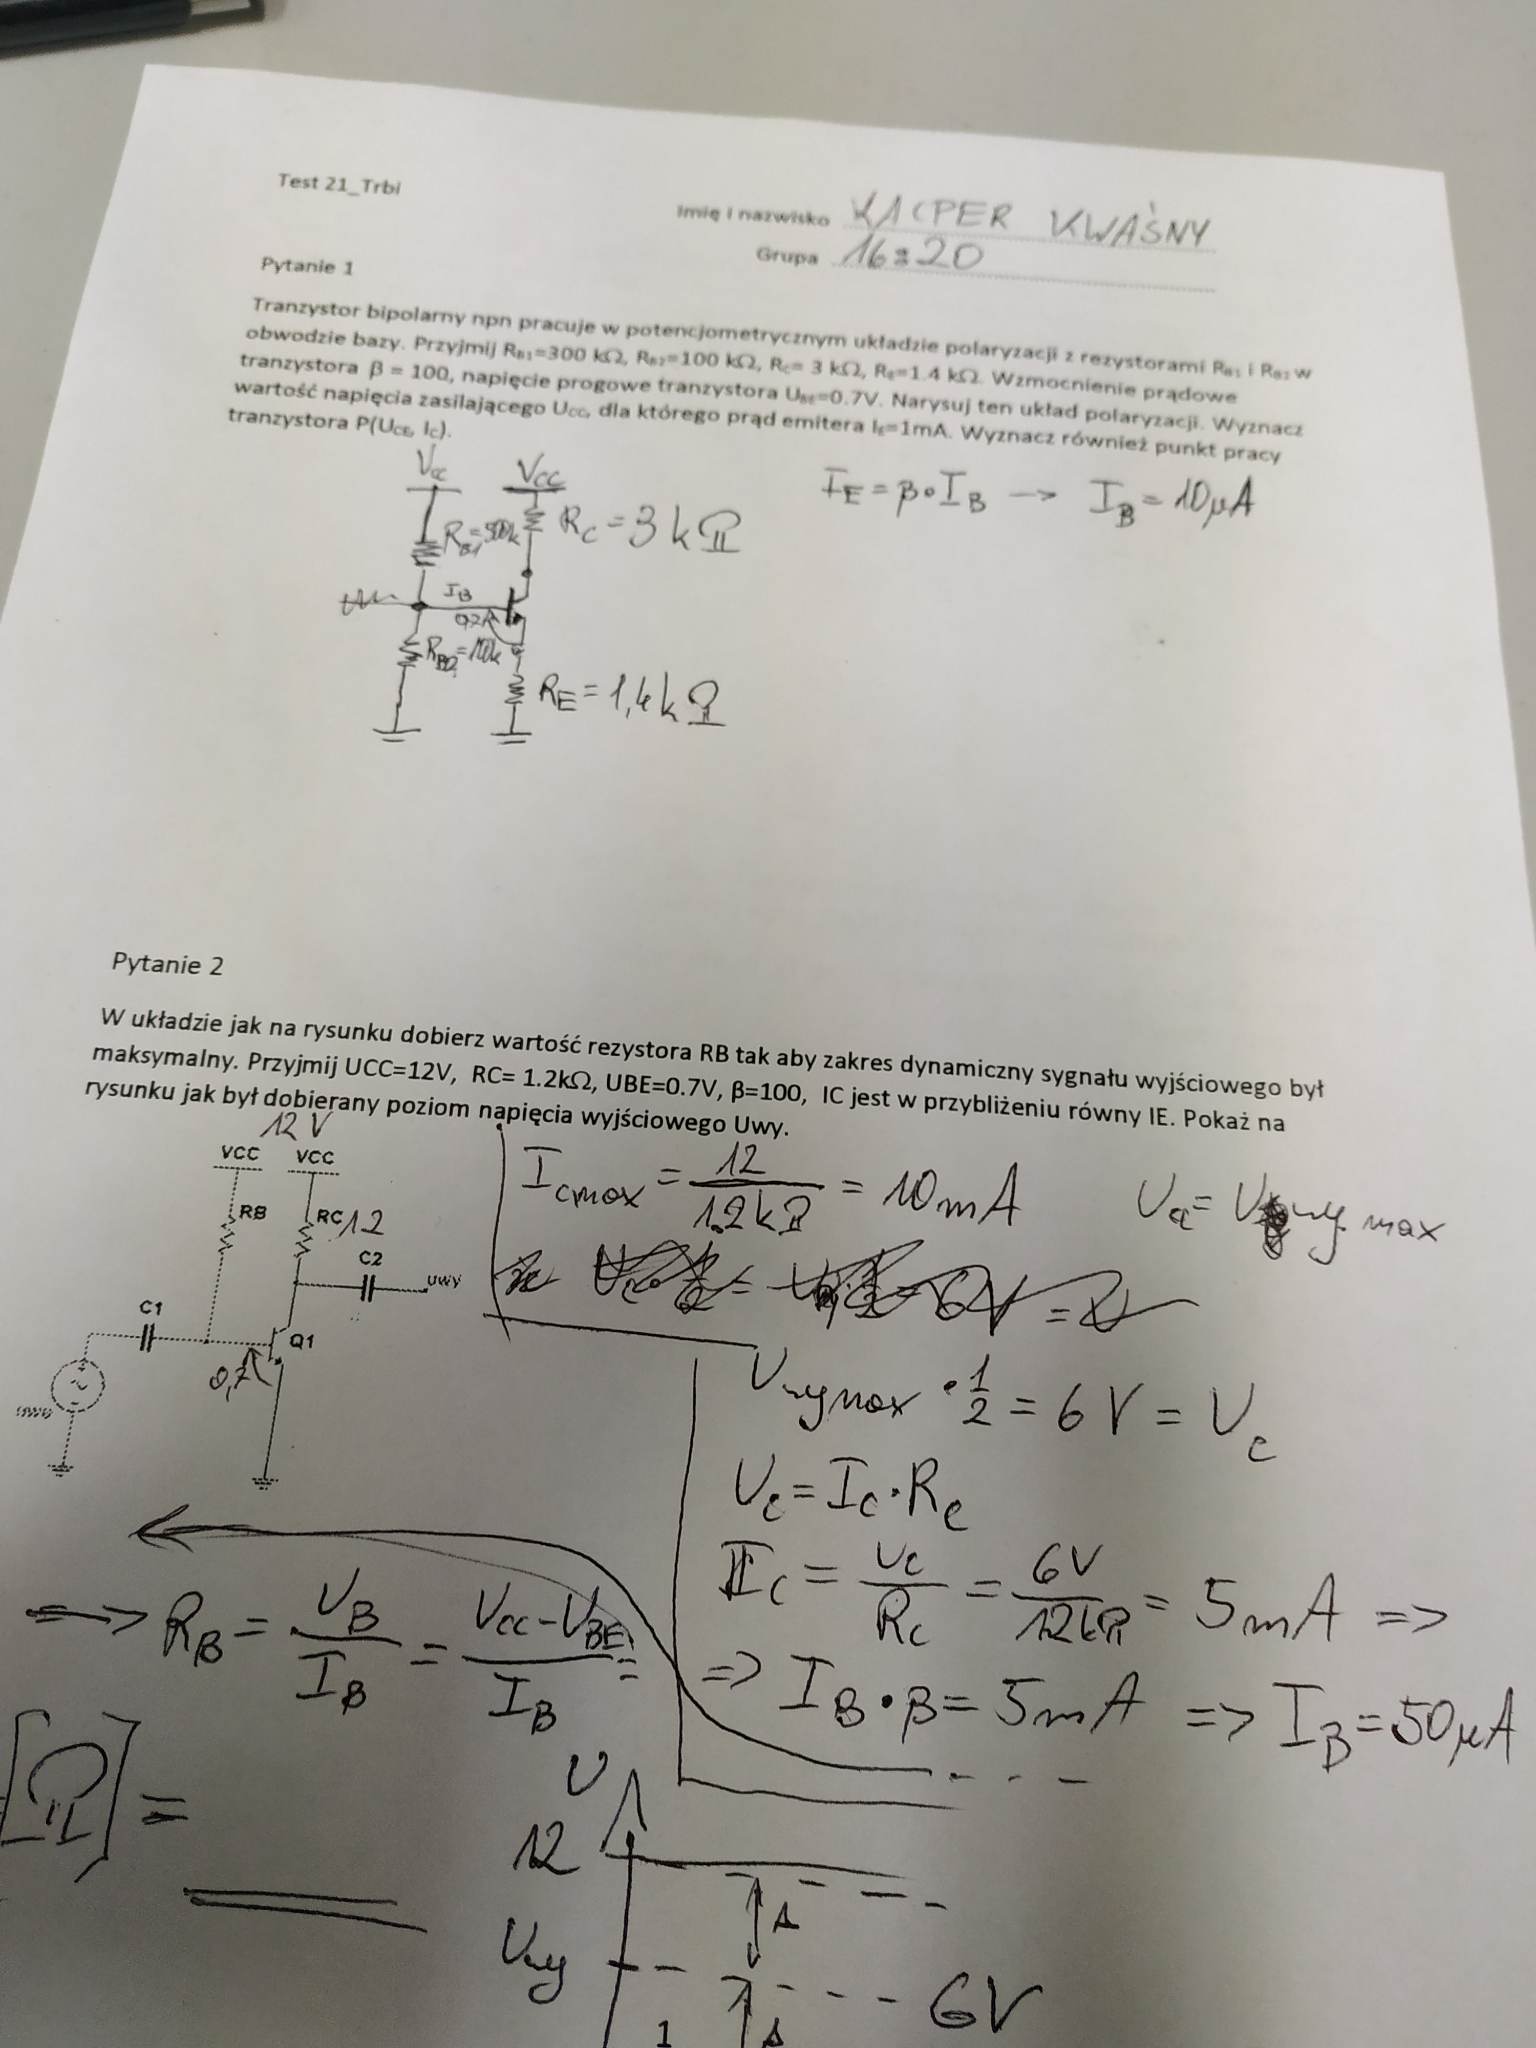 Test 21_Trbi
Imię i nazwisko KACPER KWAŚNY
Grupa 16:20
Pytanie 1
Tranzystor bipolarny npn pracuje w potencjometrycznym układzie polaryzacji z rezystorami RB1 i RB2 w
obwodzie bazy. Przyjmij RB1=300 kΩ, RB2=100 kΩ, RC= 3 kΩ, RE=1.4 kΩ. Wzmocnienie prądowe
tranzystora β = 100, napięcie progowe tranzystora UBE=0.7V. Narysuj ten układ polaryzacji. Wyznacz
wartość napięcia zasilającego UCC, dla którego prąd emitera IE=1mA. Wyznacz również punkt pracy
tranzystora P(UCE, IC).
VCC VCC
IE = β·IB → IB = 10μA
RB1= RC = 3kΩ
IB
RB2=100k
RE = 1,4kΩ
Pytanie 2
W układzie jak na rysunku dobierz wartość rezystora RB tak aby zakres dynamiczny sygnału wyjściowego był
maksymalny. Przyjmij UCC=12V, RC= 1.2kΩ, UBE=0.7V, β=100, IC jest w przybliżeniu równy IE. Pokaż na
rysunku jak był dobierany poziom napięcia wyjściowego Uwy.
12 V
VCC VCC
Icmax = 12/1.2kΩ = 10mA
RB RC 1.2
C2
UWY
C1
Q1
0,7
Uwymax · 1/2 = 6V = Uc
Uc = Ic·Rc
Ic = Uc/Rc = 6V/1.2kΩ = 5mA =>
=> RB = UB/IB = (Vcc-VBE)/IB =
=> IB·β = 5mA => IB = 50μA
[Ω] =
U
12
Δ
Uwy
6V
Δ
1